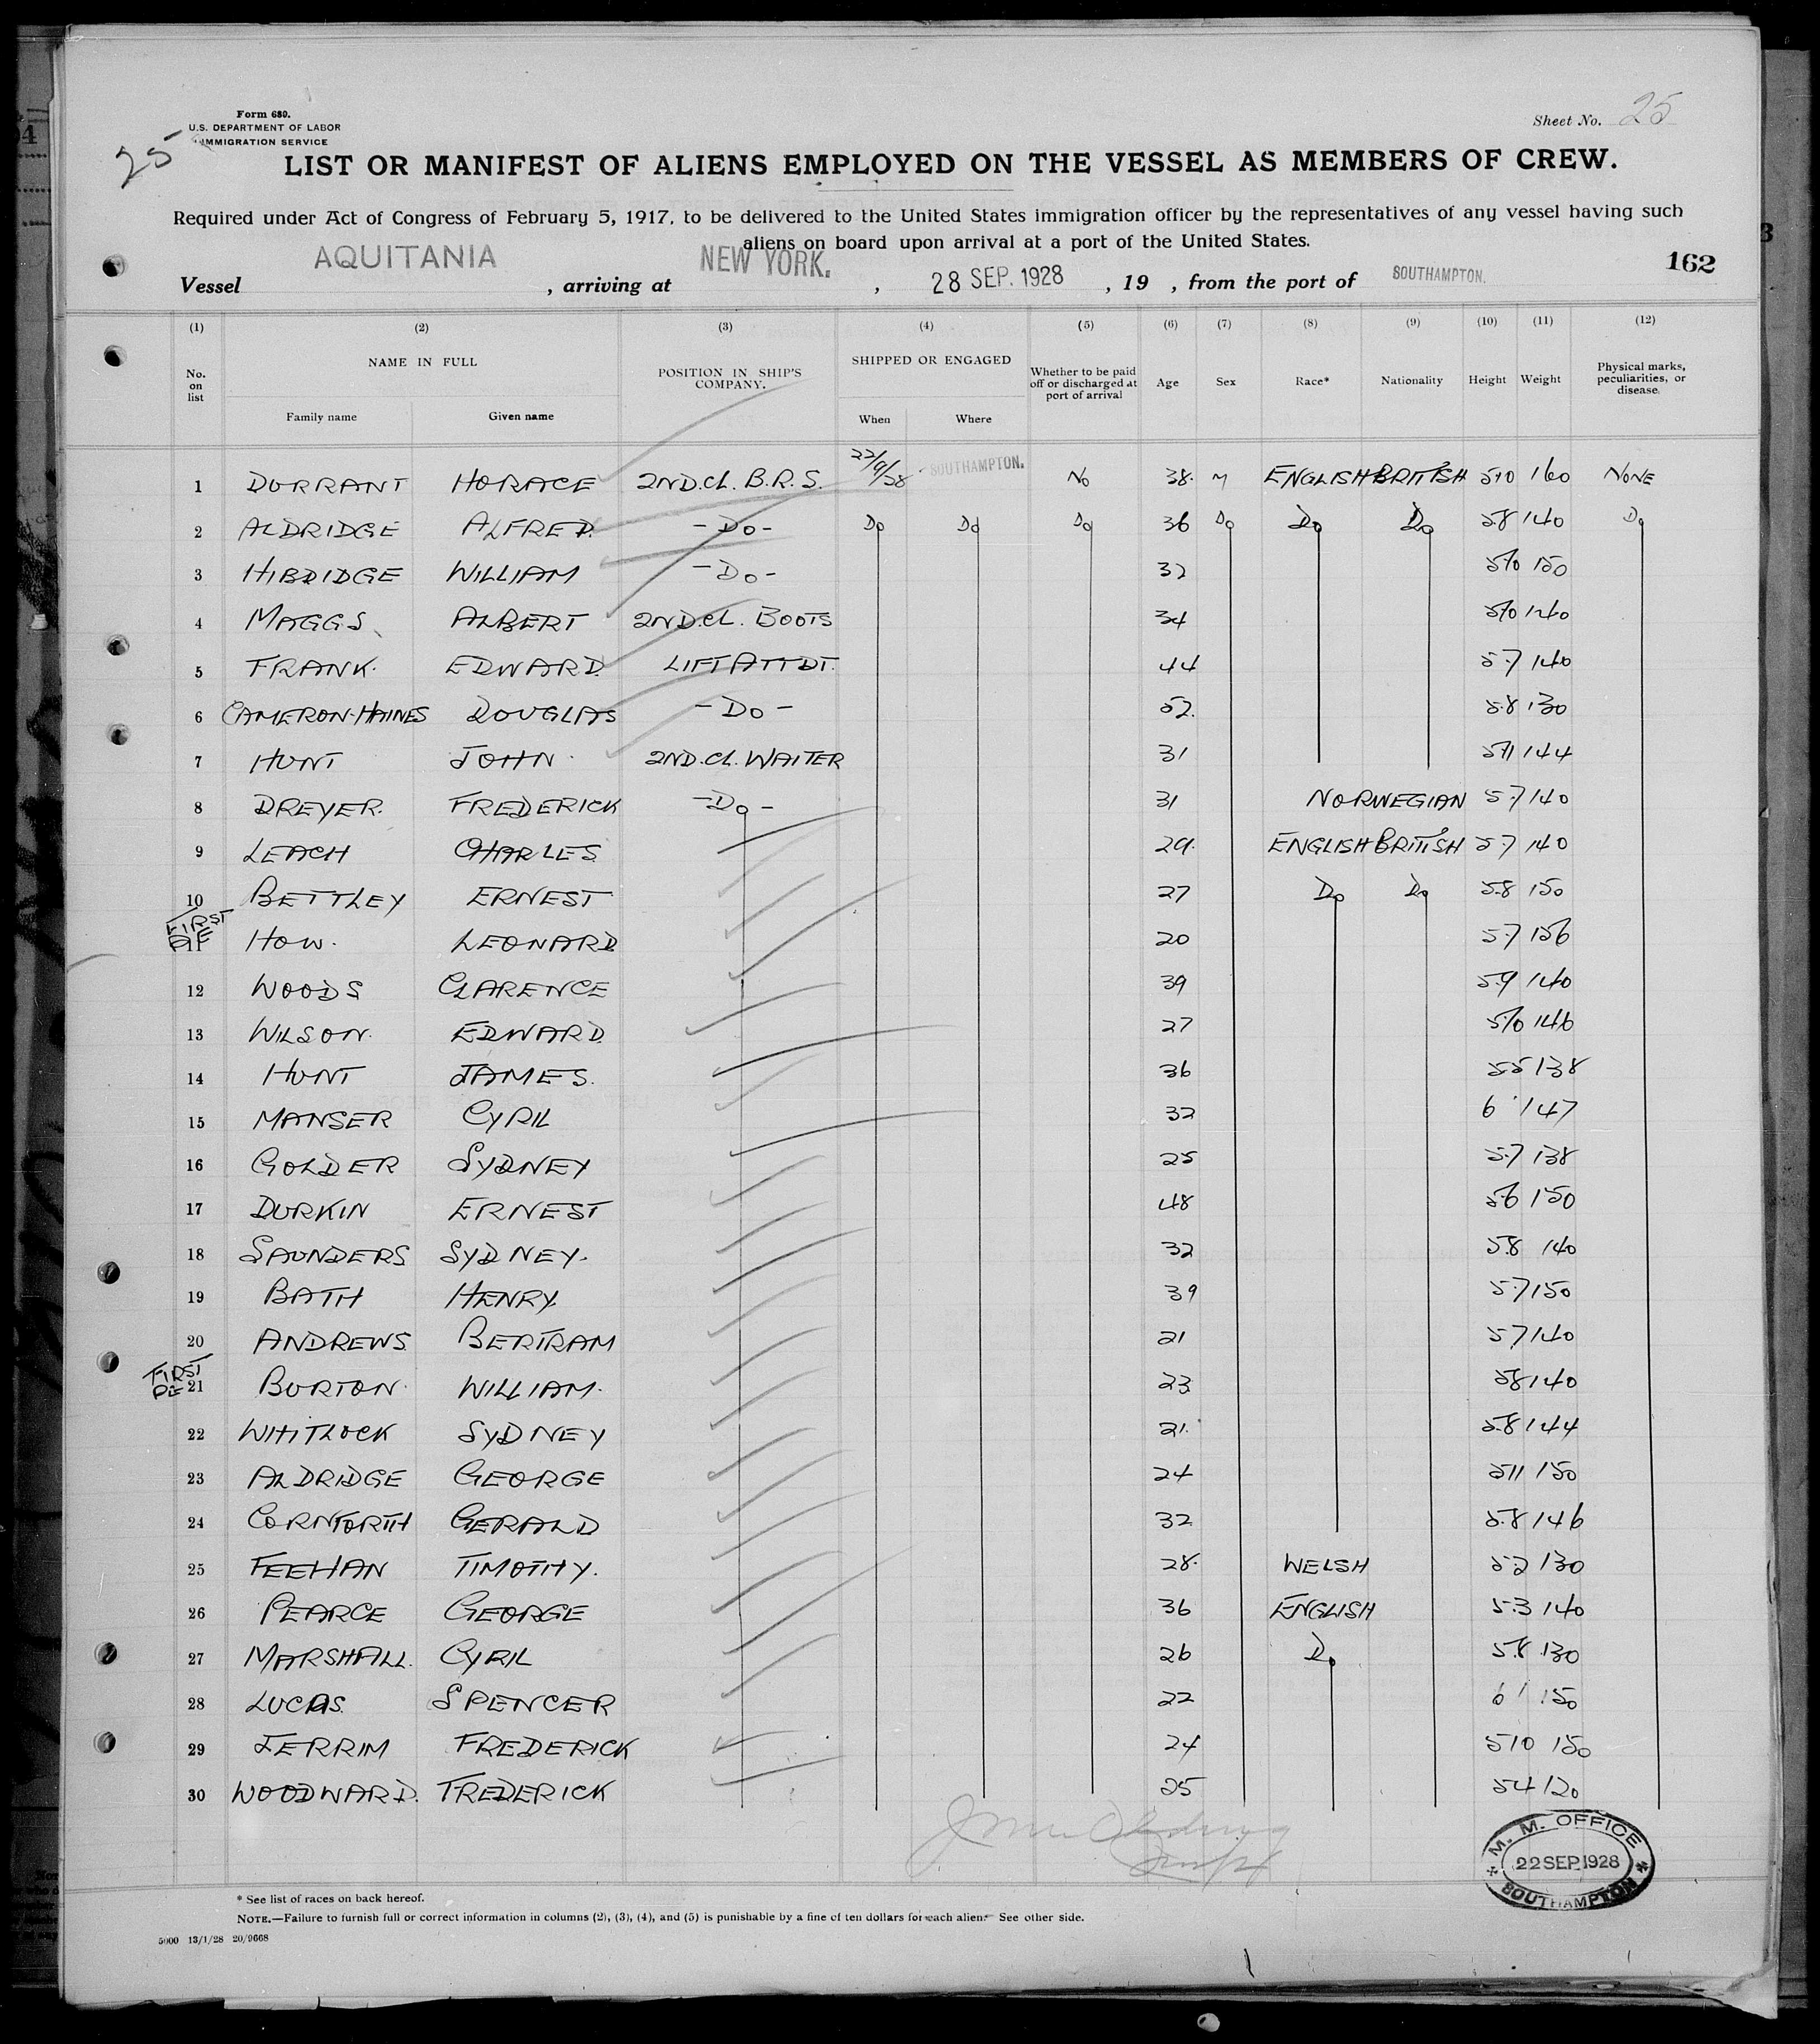 Form 680.
U.S. DEPARTMENT OF LABOR
IMMIGRATION SERVICE
25
Sheet No. 25
LIST OR MANIFEST OF ALIENS EMPLOYED ON THE VESSEL AS MEMBERS OF CREW.
Required under Act of Congress of February 5, 1917, to be delivered to the United States immigration officer by the representatives of any vessel having such
aliens on board upon arrival at a port of the United States.
162
Vessel AQUITANIA , arriving at NEW YORK. , 28 SEP. 1928 , 19 , from the port of SOUTHAMPTON.
(1) (2) (3) (4) (5) (6) (7) (8) (9) (10) (11) (12)
No. on list NAME IN FULL POSITION IN SHIP'S COMPANY. SHIPPED OR ENGAGED Whether to be paid off or discharged at port of arrival Age Sex Race* Nationality Height Weight Physical marks, peculiarities, or disease.
Family name Given name When Where
1 DURRANT HORACE 2ND.CL. B.R.S. 22/9/28 SOUTHAMPTON. No 38. M ENGLISH BRITISH 5.10 160 NONE
2 ALDRIDGE ALFRED. -Do- Do Do Do 36 Do Do Do 5.8 140 Do
3 HIBDIDGE WILLIAM -Do- 32 5.10 150
4 MAGGS ALBERT 2ND.CL. BOOTS 34 5.10 140
5 FRANK. EDWARD. LIFT ATTDT. 44 5.7 140
6 CAMERON-HAINES DOUGLAS -Do- 52. 5.8 130
7 HUNT JOHN. 2ND.CL. WAITER 31 5.11 144
8 DREYER. FREDERICK -Do- 31 NORWEGIAN 5.7 140
9 LEACH CHARLES 29. ENGLISH BRITISH 5.7 140
10 BETTLEY ERNEST 27 Do Do 5.8 150
FIRST
11 HOW. LEONARD 20 5.7 156
12 WOODS CLARENCE 39 5.9 140
13 WILSON. EDWARD. 27 5.10 146
14 HUNT JAMES. 36 5.5 138
15 MANSER CYRIL 32 6' 147
16 GOLDER SYDNEY 25 5.7 138
17 DURKIN ERNEST 48 5.6 150
18 SAUNDERS SYDNEY. 32 5.8 140
19 BATH HENRY. 39 5.7 150
20 ANDREWS BERTRAM 21 5.7 140
FIRST
21 BURTON. WILLIAM. 23 5.8 140
22 WHITLOCK SYDNEY 21. 5.8 144
23 ALDRIDGE GEORGE 24 5.11 150
24 CORNFORTH GERALD 32 5.8 146
25 FEEHAN TIMOTHY. 28. WELSH 5.2 130
26 PEARCE GEORGE 36 ENGLISH 5.3 140
27 MARSHALL. CYRIL 26 Do 5.8 130
28 LUCAS. SPENCER 22 6' 150
29 JERRIM FREDERICK 24 5.10 150
30 WOODWARD. FREDERICK 25 5.4 120
M. M. OFFICE
22 SEP. 1928
SOUTHAMPTON
* See list of races on back hereof.
NOTE.—Failure to furnish full or correct information in columns (2), (3), (4), and (5) is punishable by a fine of ten dollars for each alien. See other side.
5000 13/1/28 20/9668